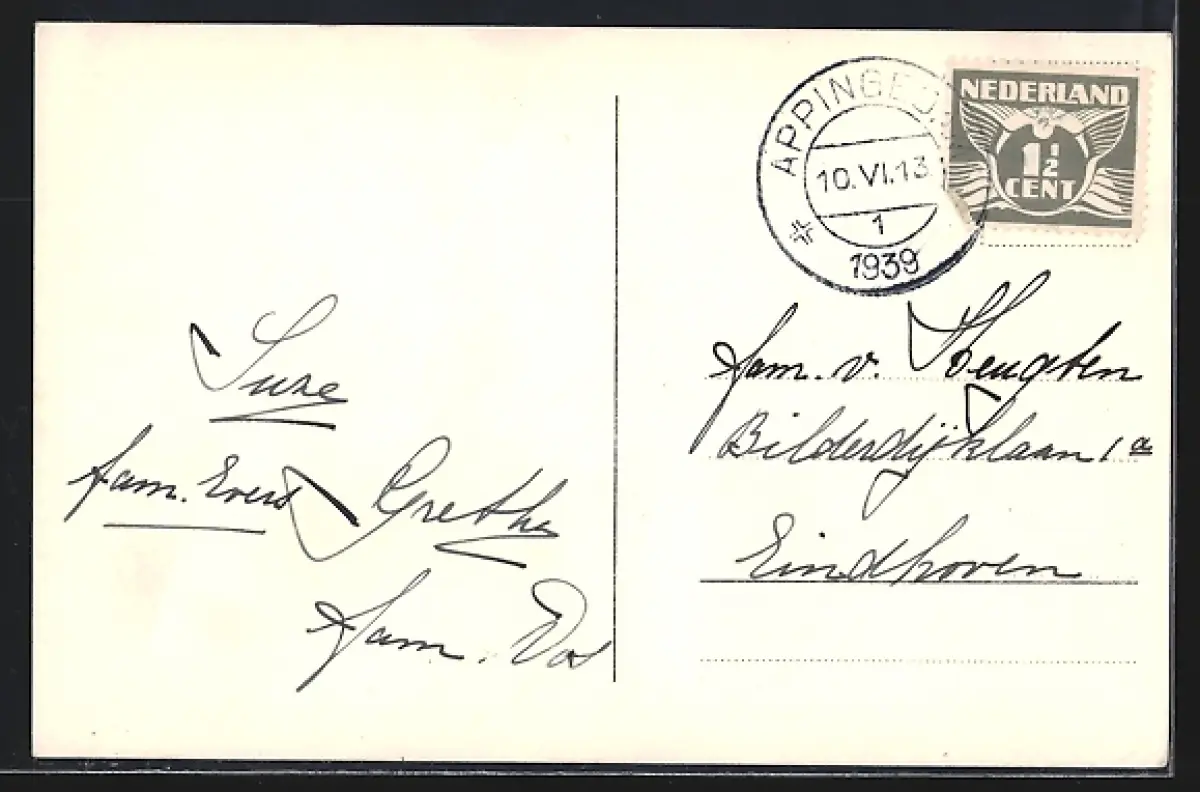 APPINGED
10.VI.13
1
1939
NEDERLAND
1½
CENT
Suze
fam. Evers
Grethe
fam. Vos
fam. v.
Bilderdijklaan 1a
Eindhoven